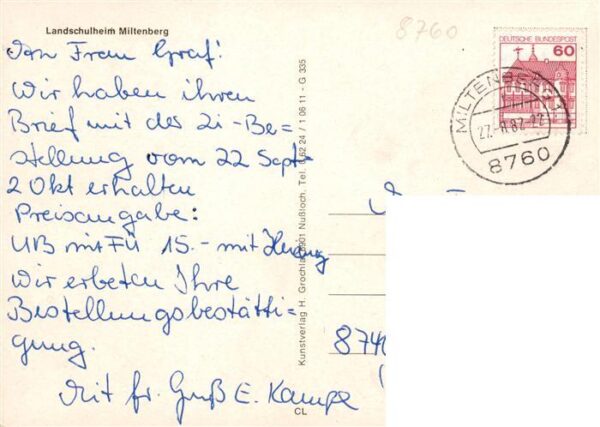 Landschulheim Miltenberg
8760
Frau Graf!
Wir haben ihren
Brief mit der Zi-Be=
stellung vom 22 Sept-
2 Okt erhalten
Preisangabe:
ÜB mit Fü 15.- mit Heizung
Wir erbeten Ihre
Bestellungsbestätti=
gung.
Mit fr. Gruß E. Kampe
CL
Kunstverlag H. Grochla, 6901 Nußloch, Tel. 0 62 24 / 1 06 11 - G 335
DEUTSCHE BUNDESPOST
60
MILTENBERG 1
8760
8740